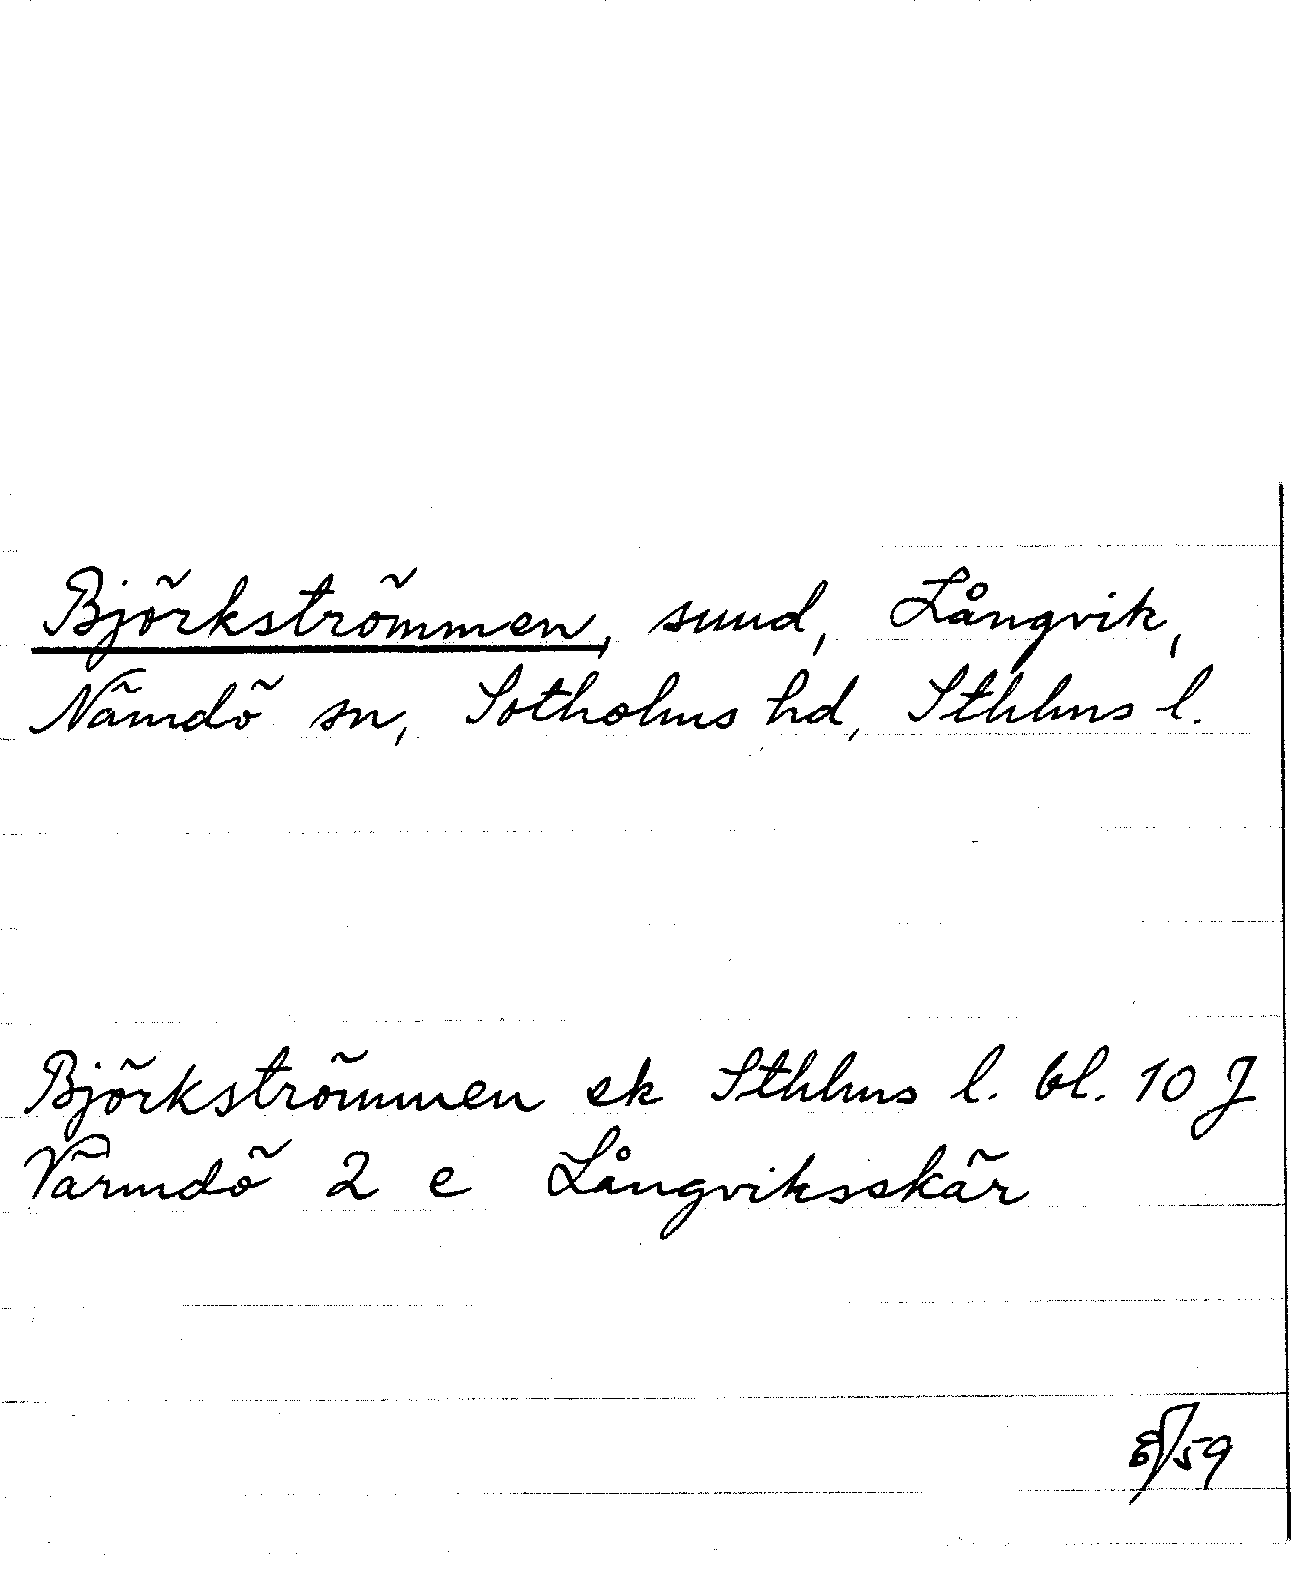 Björkströmmen, sund, Långvik,
Nämdö sn, Sotholms hd, Sthlms l.
Björkströmmen ek Sthlms l. bl. 10 J
Värmdö 2 e Långviksskär
/59